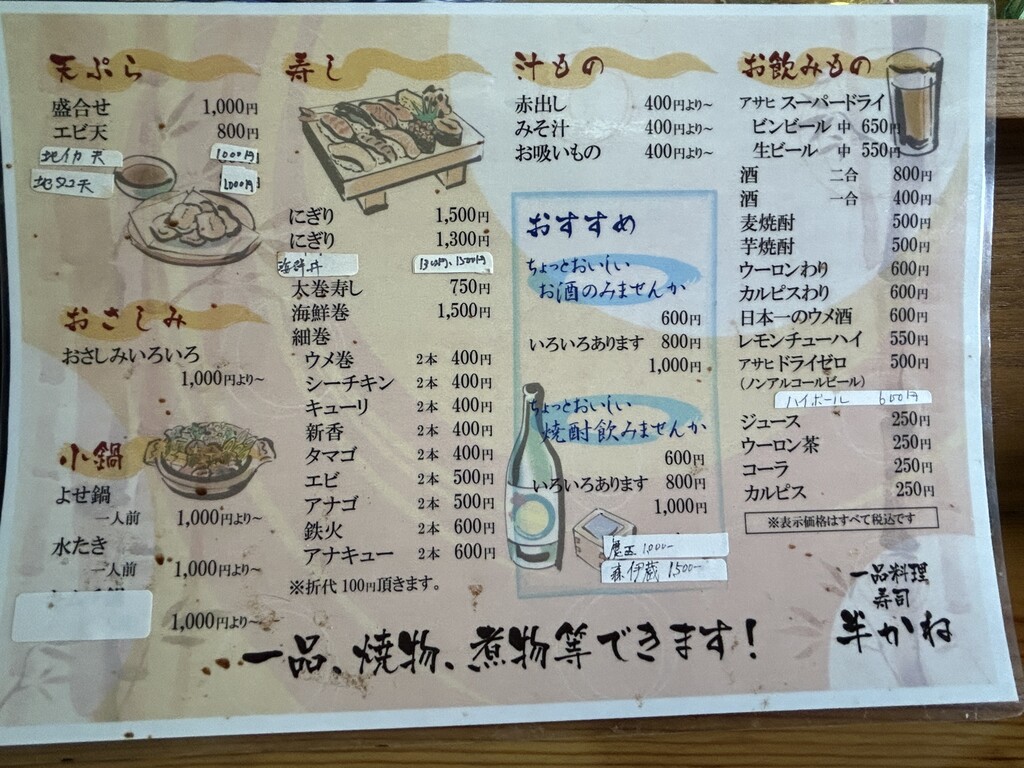 天ぷら
盛合せ 1,000円
エビ天 800円
地イカ天 1000円
地タコ天 1,000円
おさしみ
おさしみいろいろ
1,000円より~
小鍋
よせ鍋
一人前 1,000円より~
水たき
一人前 1,000円より~
1,000円より~
寿し
にぎり 1,500円
にぎり 1,300円
海鮮丼 1300円、1500円
太巻寿し 750円
海鮮巻 1,500円
細巻
ウメ巻 2本 400円
シーチキン 2本 400円
キューリ 2本 400円
新香 2本 400円
タマゴ 2本 400円
エビ 2本 500円
アナゴ 2本 500円
鉄火 2本 600円
アナキュー 2本 600円
※折代 100円頂きます。
汁もの
赤出し 400円より~
みそ汁 400円より~
お吸いもの 400円より~
おすすめ
ちょっとおいしい
お酒のみませんか
600円
いろいろあります 800円
1,000円
ちょっとおいしい
焼酎飲みませんか
600円
いろいろあります 800円
1,000円
魔王 1,000-
森伊蔵 1500-
お飲みもの
アサヒ スーパードライ
ビンビール 中 650円
生ビール 中 550円
酒 二合 800円
酒 一合 400円
麦焼酎 500円
芋焼酎 500円
ウーロンわり 600円
カルピスわり 600円
日本一のウメ酒 600円
レモンチューハイ 550円
アサヒ ドライゼロ 500円
(ノンアルコールビール)
ハイボール 600円
ジュース 250円
ウーロン茶 250円
コーラ 250円
カルピス 250円
※表示価格はすべて税込です
一品、焼物、煮物等できます!
一品料理
寿司
半かね